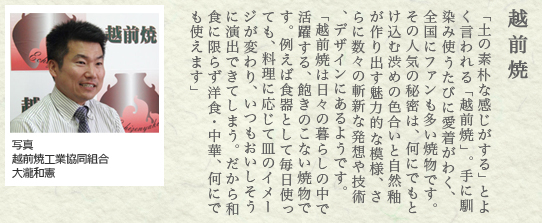 越前焼
「土の素朴な感じがする」とよ
く言われる「越前焼」。手に馴
染み使うたびに愛着がわく、
全国にファンも多い焼物です。
その人気の秘密は、何にでもと
け込む渋めの色合いと自然釉
が作り出す魅力的な模様、さ
らに数々の斬新な発想や技術
、デザインにあるようです。
「越前焼は日々の暮らしの中で
活躍する、飽きのこない焼物で
す。例えば食器として毎日使っ
ても、料理に応じて皿のイメー
ジが変わり、いつもおいしそう
に演出できてしまう。だから和
食に限らず洋食・中華、何にで
も使えます」
越前焼
写真
越前焼工業協同組合
大瀧和憲